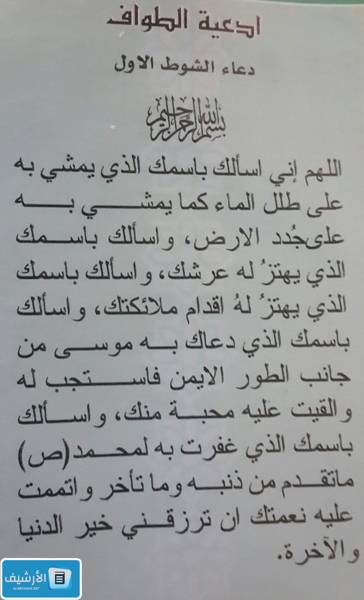 ادعية الطواف
دعاء الشوط الاول
بسم الله الرحمن الرحيم
اللهم إني اسألك باسمك الذي يمشي به
على طلل الماء كما يمشي به
على جُدد الارض، و اسألك باسمك
الذي يهتزُ له عرشك، و اسألك باسمك
الذي يهتزُ لهُ اقدام ملائكتك، و اسألك
باسمك الذي دعاك به موسى من
جانب الطور الايمن فاستجب له
والقيت عليه محبة منك، و اسألك
باسمك الذي غفرت به لمحمد(ص)
ماتقدم من ذنبه وما تأخر و اتممت
عليه نعمتك ان ترزقني خير الدنيا
والآخرة.
الأرشيف